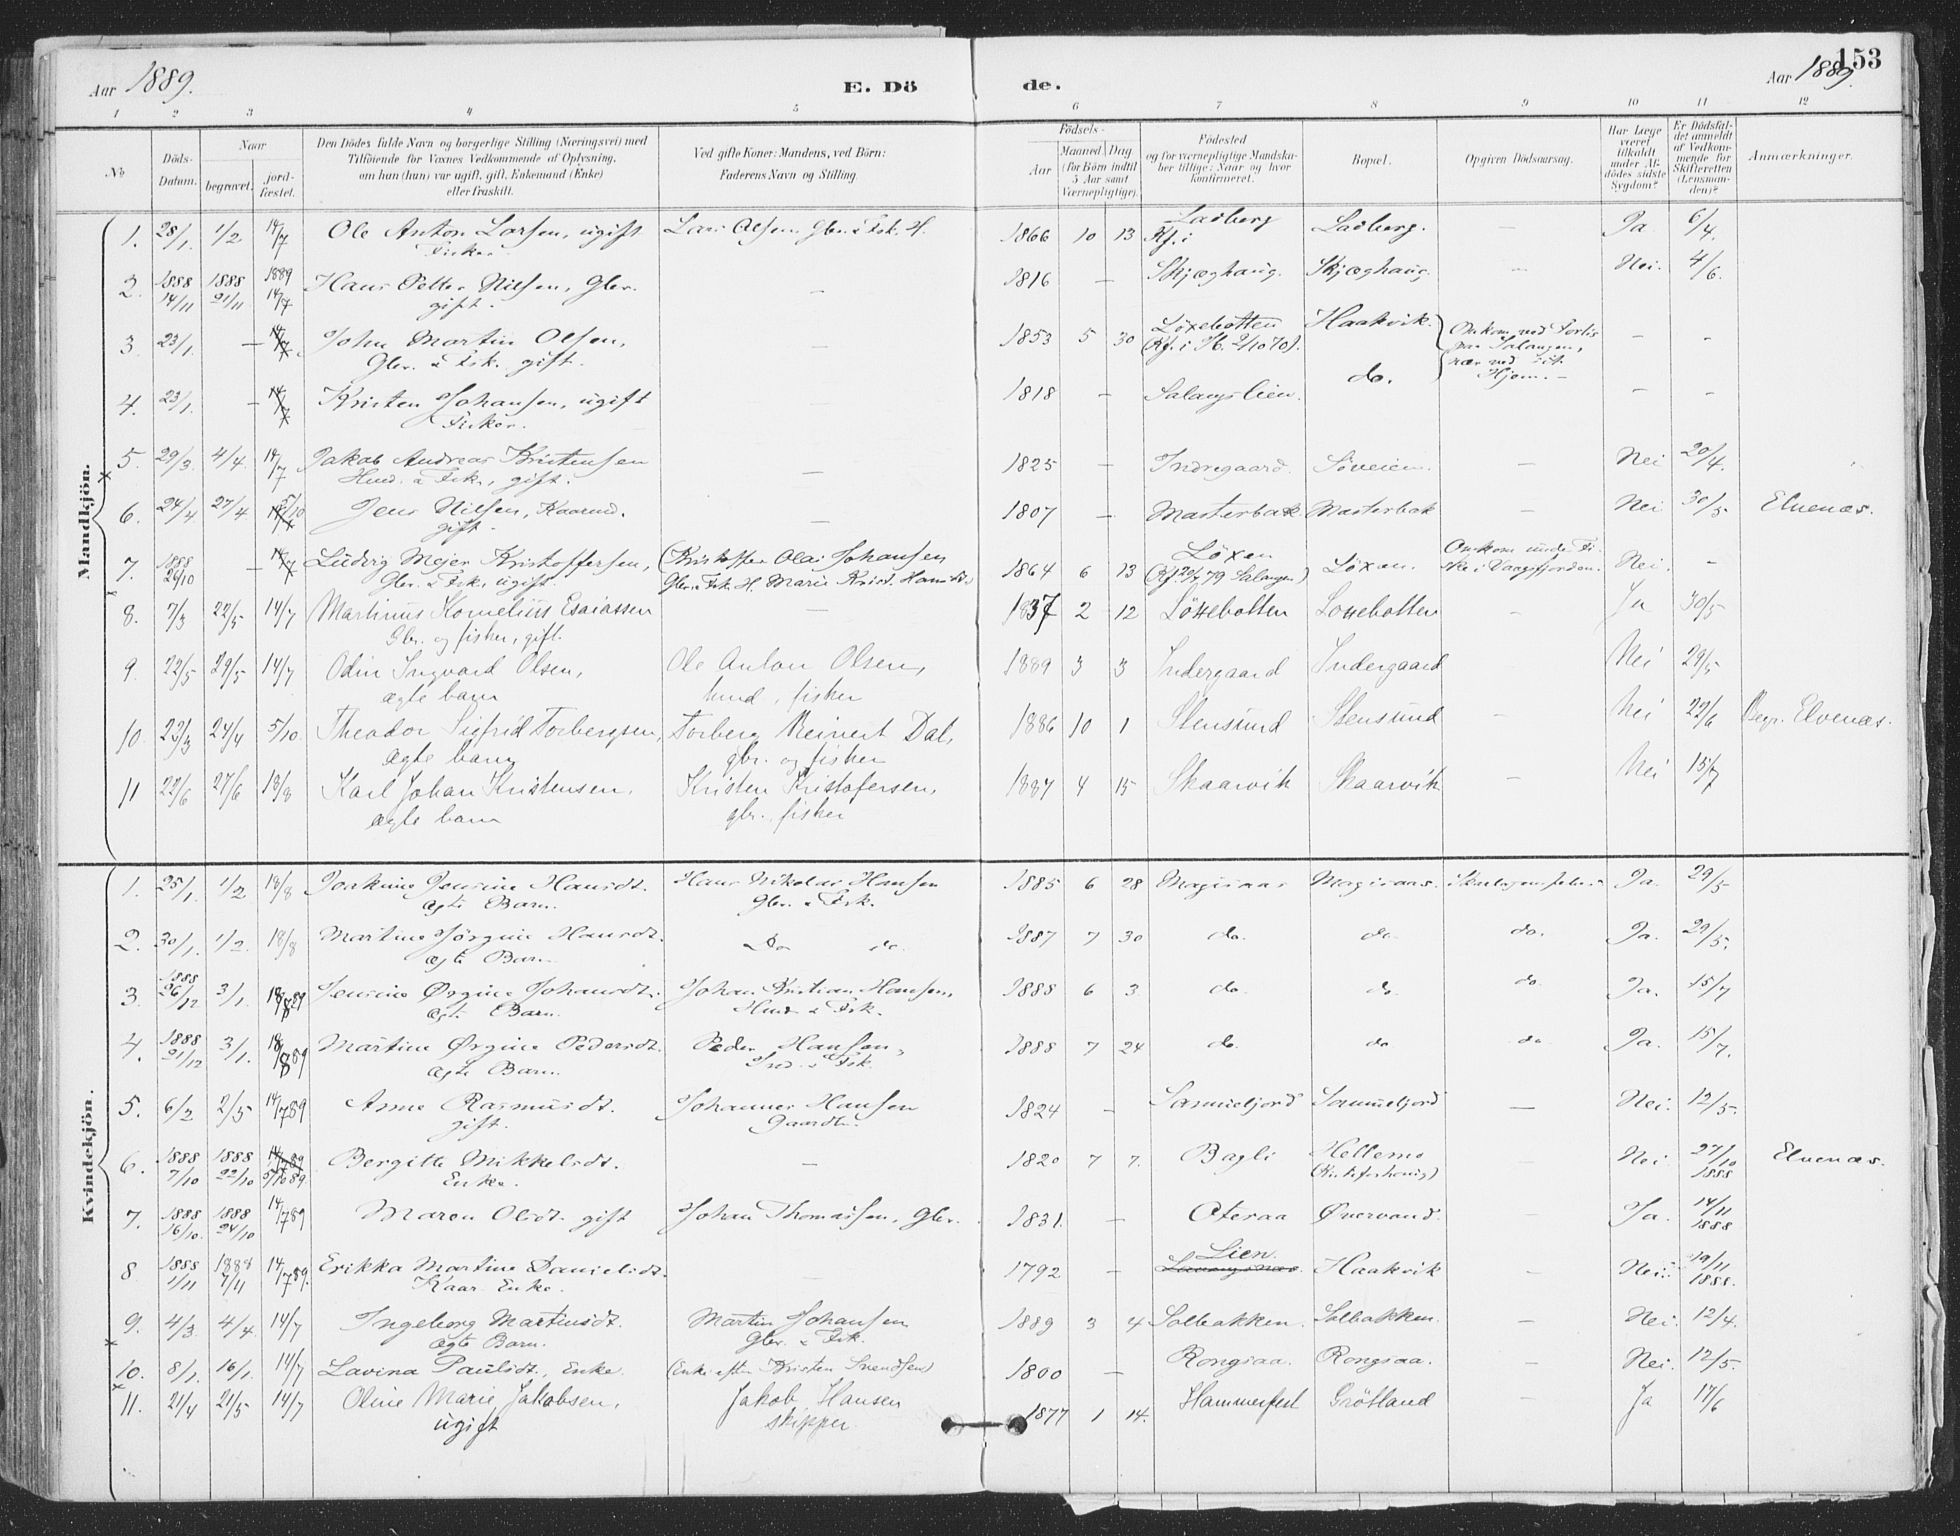 Aar 1889.
E. Dö
de.
Aar 1889.
153
1 2 3 4 5 6 7 8 9 10 11 12
No
Döds-Datum.
Naar
begravet.
jord-fæstet.
Den Dödes fulde Navn og borgerlige Stilling (Næringsvei) med
Tilföiende for Voxnes Vedkommende af Oplysning,
om han (hun) var ugift, gift, Enkemand (Enke)
eller fraskilt.
Ved gifte Koner: Mandens, ved Börn:
Faderens Navn og Stilling.
Födsels-
Aar
Maaned Dag
(for Börn indtil
5 Aar samt
Værnepligtige).
Födested
og for værnepligtige Mandska-
ber tillige: Naar og hvor
konfirmeret.
Bopæl.
Opgiven Dödsaarsag.
Har Læge
været
tilkaldt
under Af-
dödes sidste
Sygdom?
Er Dödsfal-
det anmeldt
af Vedkom-
mende for
Skifteretten
(Lensman-
den)?
Anmærkninger.
Mandkjön.
1. 28/1. 1/2 14/7 Ole Anton Larsen, ugift Lars Olsen Gbr. & Fsk. H. 1866 10 13 Ladberg Ladberg. — Ja. 6/4.
Fisker. Kf. i
2. 1888 14/11 1888 21/11 1889 14/7 Hans Petter Nilsen, Gbr. — 1816 — Skjæghaug. Skjæghaug. — Nei. 4/6.
gift.
3. 23/1. — 14/7 John Martin Olsen, — 1853 5 30 Löxebotten Haakvik. Omkom ved Forlis — —
Gbr. & Fsk. gift. (Kf. i H. 2/10 70). Salangen,
nær ved sit
Hjem. —
4. 23/1. — 14/7 Kristen Johansen, ugift 1818 — Salangslien. do. — —
Fisker.
5. 29/3. 4/4. 14/7 Jakob Andreas Kristensen — 1825 — Indregaard. Söveien. — Nei 20/4.
Hmd. & Fsk., gift.
6. 24/4 27/4 14/7 5/10 Jens Nilsen, Kaarmd. — 1807 — Masterbak Masterbak — Nei. 30/5 Elvenæs.
gift.
7. 1888 26/10 — 14/7 Ludvig Mejer Kristoffersen, (Kristoffer Olai Johansen 1864 6 13 Löxen Löxen. Omkom under Fi- Nei. —
Gbr. & Fsk., ugift. Gbr. & Fsk. H. Marie Krist. Hansdtr) (Kf. 20/7 79 Salangen) ske i Vaagsfjorden.
8. 7/3 22/5 14/7 Martinus Kornelius Esaiassen — 1837 2 12 Löxebotten Loxebotten — Ja 30/5
Gbr. og fisker, gift.
9 22/5 29/5 14/7 Odin Ingvard Olsen, Ole Anton Olsen, 1889 3 3 Indergaard Indergaard — Nei 29/5
ægte barn hmd, fisker
10. 23/3 24/4 5/10 Theodor Sigfrid Torbergsen, Torberg Reinert Dal, 1886 10 1 Stensund Stensund — Nei 22/6 Begr. Elvenæs.
ægte barn gbr. og fisker
11 22/6 27/6 18/8 Karl Johan Kristensen, Kristen Kristofersen, 1887 4 15 Skaarvik Skaarvik — Nei 15/7
ægte barn gbr., fisker
Kvindekjön.
1. 25/1. 1/2 18/8 Joakime Jensine Hansdt. Hans Nikolai Hansen 1885 6 28 Ja. 29/5
ægte Barn. Gbr. & Fsk.
2. 30/1. 1/2. 18/8 Martine Jörgine Hansdt. Do do. 1887 7 30 do. do. do. Ja. 29/5.
ægte Barn.
3. 1888 26/12 3/1. 18/8 89 Jensine Ørgine Johansdt. Johan Kristian Hansen, 1888 6 3. do. do. do. Ja. 15/7
ægte Barn. Hmd. & Fsk.
4. 1888 21/12 3/1. 18/8 89 Martine Ørgine Pedersdt. Peder Hansen, 1888 7 24 do. do do Ja. 15/7.
ægte Barn. Ind. & Fsk.
5. 6/2 2/5 14/7 89 Anne Rasmusdt. Johannes Hansen 1824 — Sammelfjord Sammelfjord — Nei. 12/5.
gift. Gaardbr.
6. 1888 7/10 1888 22/10 14/7 89 5/10 89 Bergitte Mikkelsdt. — 1820 7 7. Bagli Hellemo — Nei. 27/10 1888 Elvenæs.
Enke.
7. 1888 16/10. 1888 24/10 14/7 89 Maren Olsdt. gift Johan Thomassen, Gbr. 1831. — Øvervand. — Ja. 14/11 1888
8 1888 1/11 1888 7/11 14/7 89. Erikka Martine Danielsdt. — 1792 — Lien. Haakvik — Nei. 19/11 1888.
Kaar. Enke.
9. 4/3. 4/4 14/7 Ingeborg Martinsdt. Martin Johansen 1889 3 4 Solbakken. Solbakken. — Nei. 12/4.
ægte Barn. Gbr. & Fsk.
10. 8/1. 16/1. 14/7 Lavina Paulsdt., Enke. (Enke efter Kristen Svendsen) 1800 — Rongsaa. Rongsaa. — Nei. 12/5.
11. 21/4 21/5 14/7 Oline Marie Jakobsen, Jakob Hansen 1877 1 14. Hammerfest Grötland — Ja 17/6
ugift skipper.